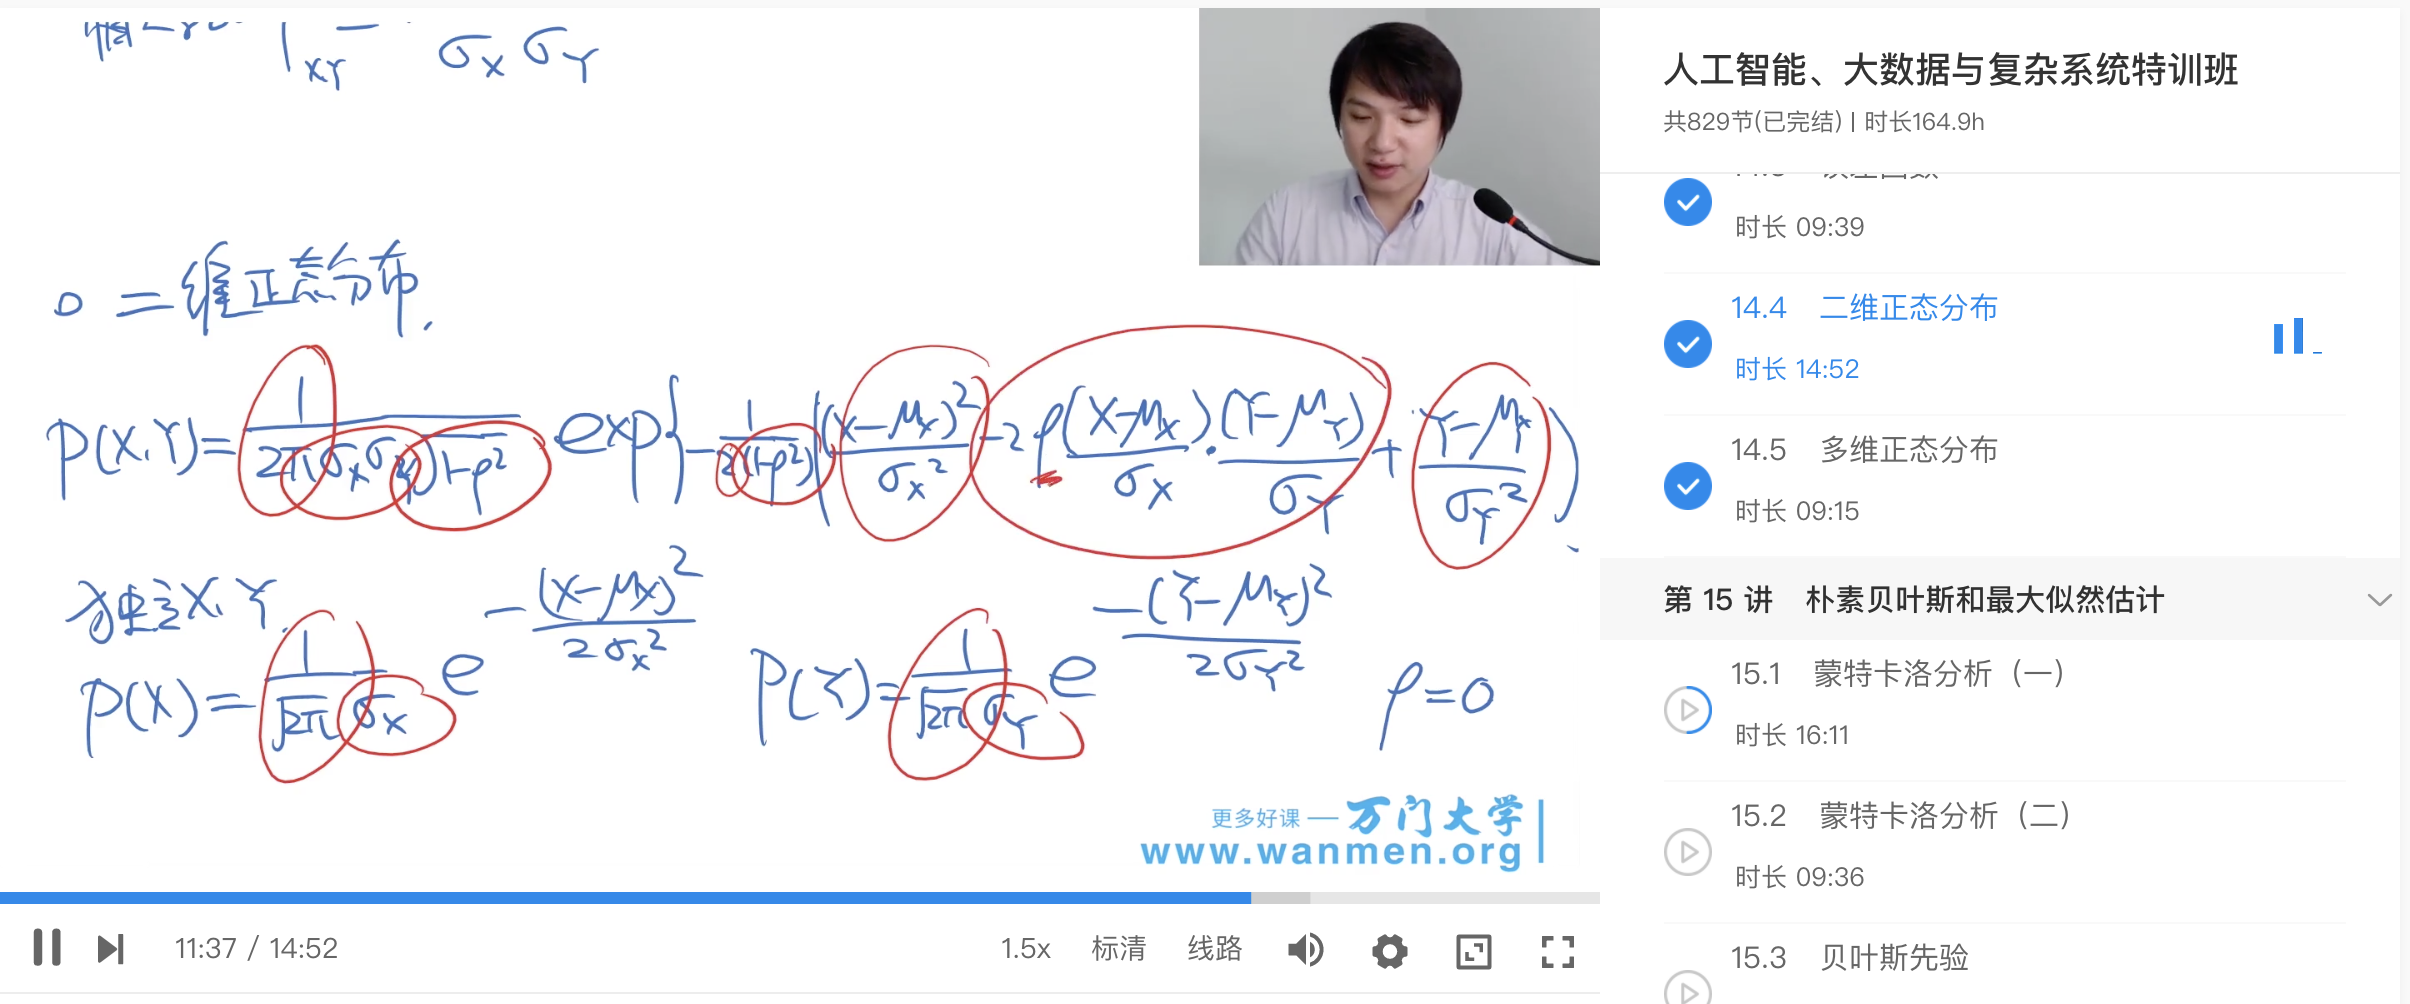 ρ_XY = σ_X σ_Y
二维正态分布.
P(X,Y)= 1/(2πσ_Xσ_Y√(1-ρ²)) exp{-1/(2(1-ρ²)) ((X-μ_X)²/σ_X² -2ρ(X-μ_X)/σ_X·(Y-μ_Y)/σ_Y + Y-μ_Y/σ_Y²)
独立X,Y.
P(X)= 1/(√2π σ_X) e -(X-μ_X)²/2σ_X² P(Y)= 1/(√2π σ_Y) e -(Y-μ_Y)²/2σ_Y² ρ=0
更多好课 — 万门大学
www.wanmen.org
11:37 / 14:52 1.5x 标清 线路
人工智能、大数据与复杂系统特训班
共829节(已完结) | 时长164.9h
时长 09:39
14.4 二维正态分布
时长 14:52
14.5 多维正态分布
时长 09:15
第 15 讲 朴素贝叶斯和最大似然估计
15.1 蒙特卡洛分析（一）
时长 16:11
15.2 蒙特卡洛分析（二）
时长 09:36
15.3 贝叶斯先验